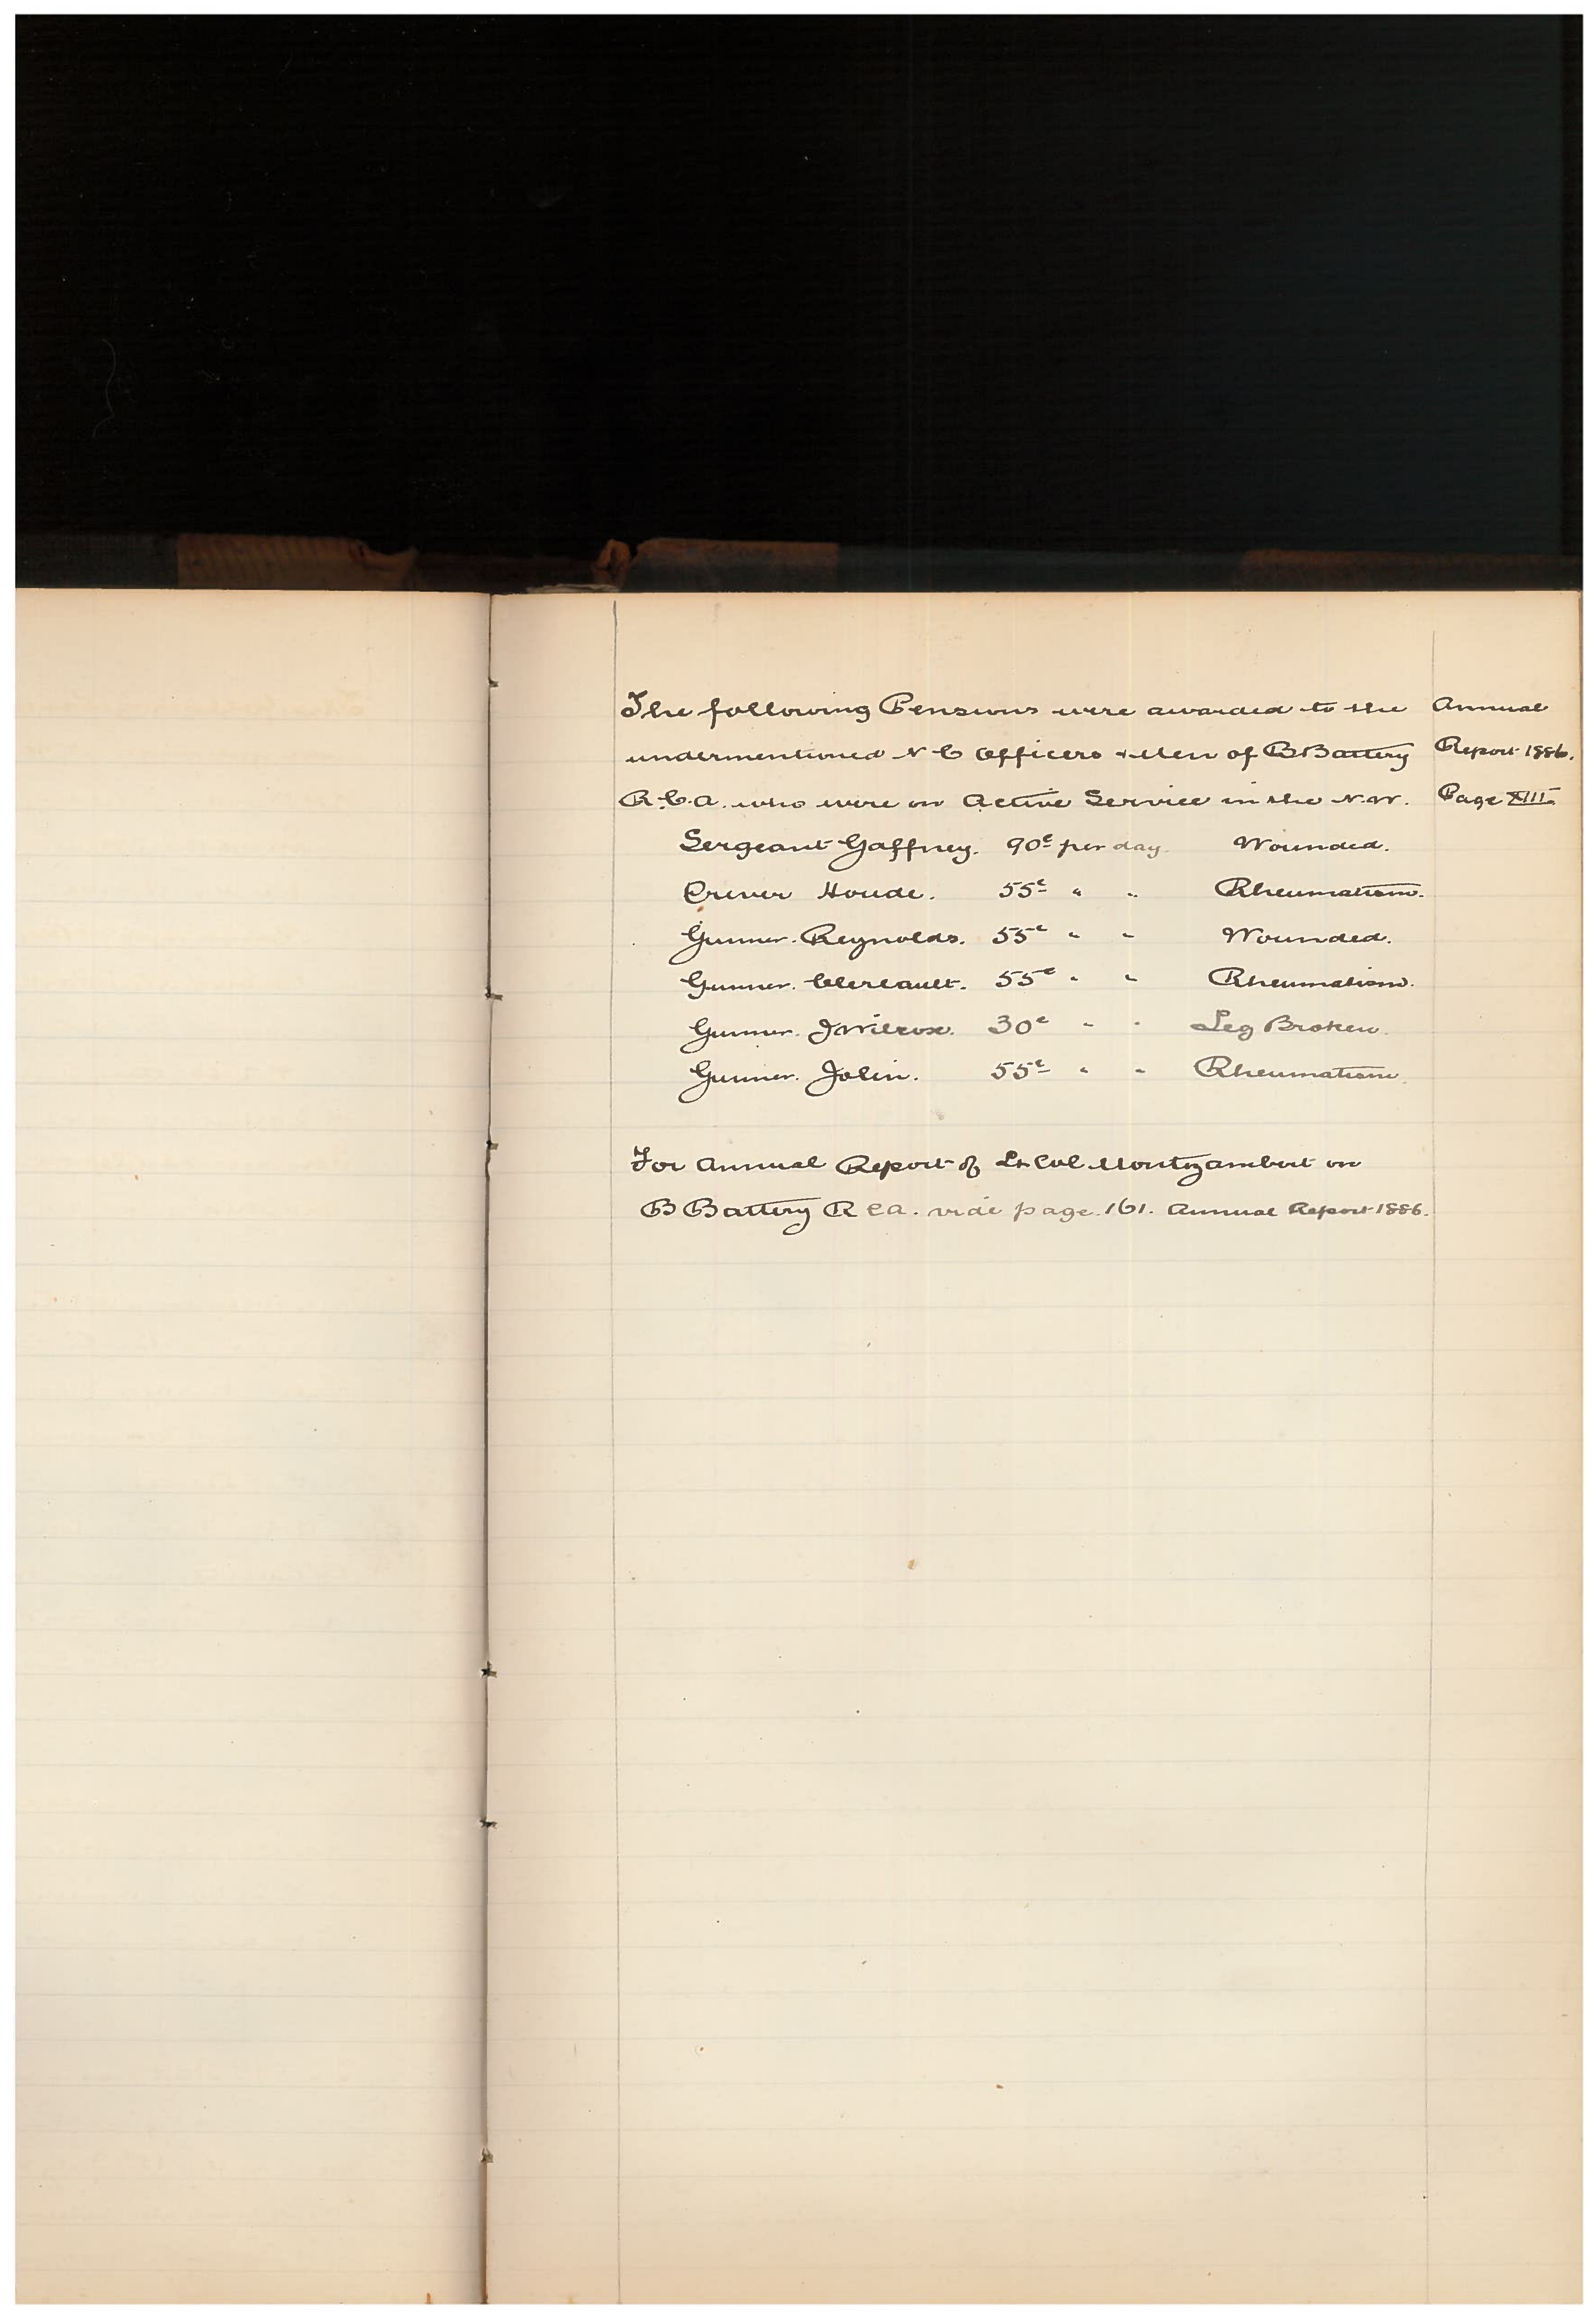 The following Pensions were awarded to the
undermentioned N C Officers & Men of B Battery
R.C.A. who were on Active Service in the N.W.
Sergeant Gaffney. 90c per day. Wounded.
Driver Houde. 55c " " Rheumatism.
Gunner. Reynolds. 55c " " Wounded.
Gunner. 55c " " Rheumatism.
Gunner. J Wilcox. 30c " " Leg Broken.
Gunner. Jolin. 55c " " Rheumatism.
For Annual Report of Lt Col Montizambert on
B Battery R C A. vide page. 161. Annual Report 1886.
Annual
Report 1886.
Page XIII